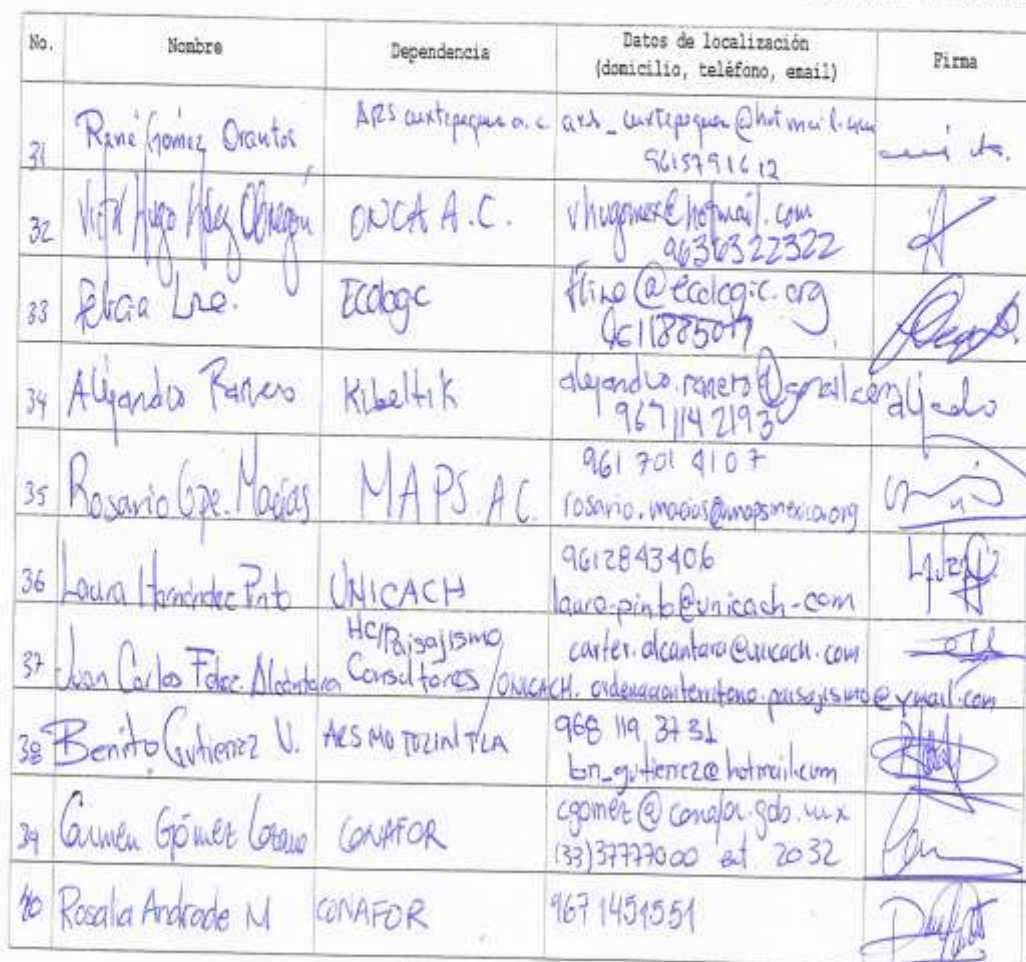 No. Nombre Dependencia Datos de localización Firma
(domicilio, teléfono, email)
31 René Gómez Orantes ARS cuxtepeques a.c. ars_cuxtepeques@hotmail.com
9615791612
32 Victor Hugo Hdez Obregón ONCA A.C. vhugomex@hotmail.com
9636322322
33 Elicia Ecologc flino@ecologic.org
9611885017
34 Alejandro Ranero Kibeltik alejandro.ranero@gmail.com
967 114 2193
35 Rosario Gpe. Macías MAPS. AC. 961 701 4107
rosario.macias@mapsmexico.org
36 Laura Hernández Pinto UNICACH 9612843406
laura-pinto@unicach-com
37 Juan Carlos Fdez. Alcántara HC/Paisajismo carter.alcantara@unicach.com
Consultores /UNICACH. ordenacionterritorio.paisajismo@ymail.com
38 Benito Gutierrez V. ARS MOTOZINTLA 968 119 3731
bn_gutierrez@hotmail.com
39 Carmen Gómez Lozano CONAFOR cgomez@conafor.gob.mx
(33)37777000 ext. 2032
40 Rosalia Andrade M CONAFOR 9671451551